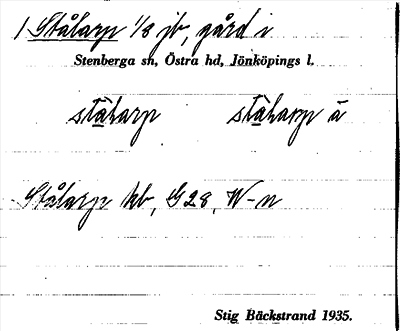 1 Stålarp 1/8 jb, gård i
Stenberga sn, Östra hd, Jönköpings l.
stàlarp stàlarp ä
Stålarp kb, G28, W-n
Stig Bäckstrand 1935.